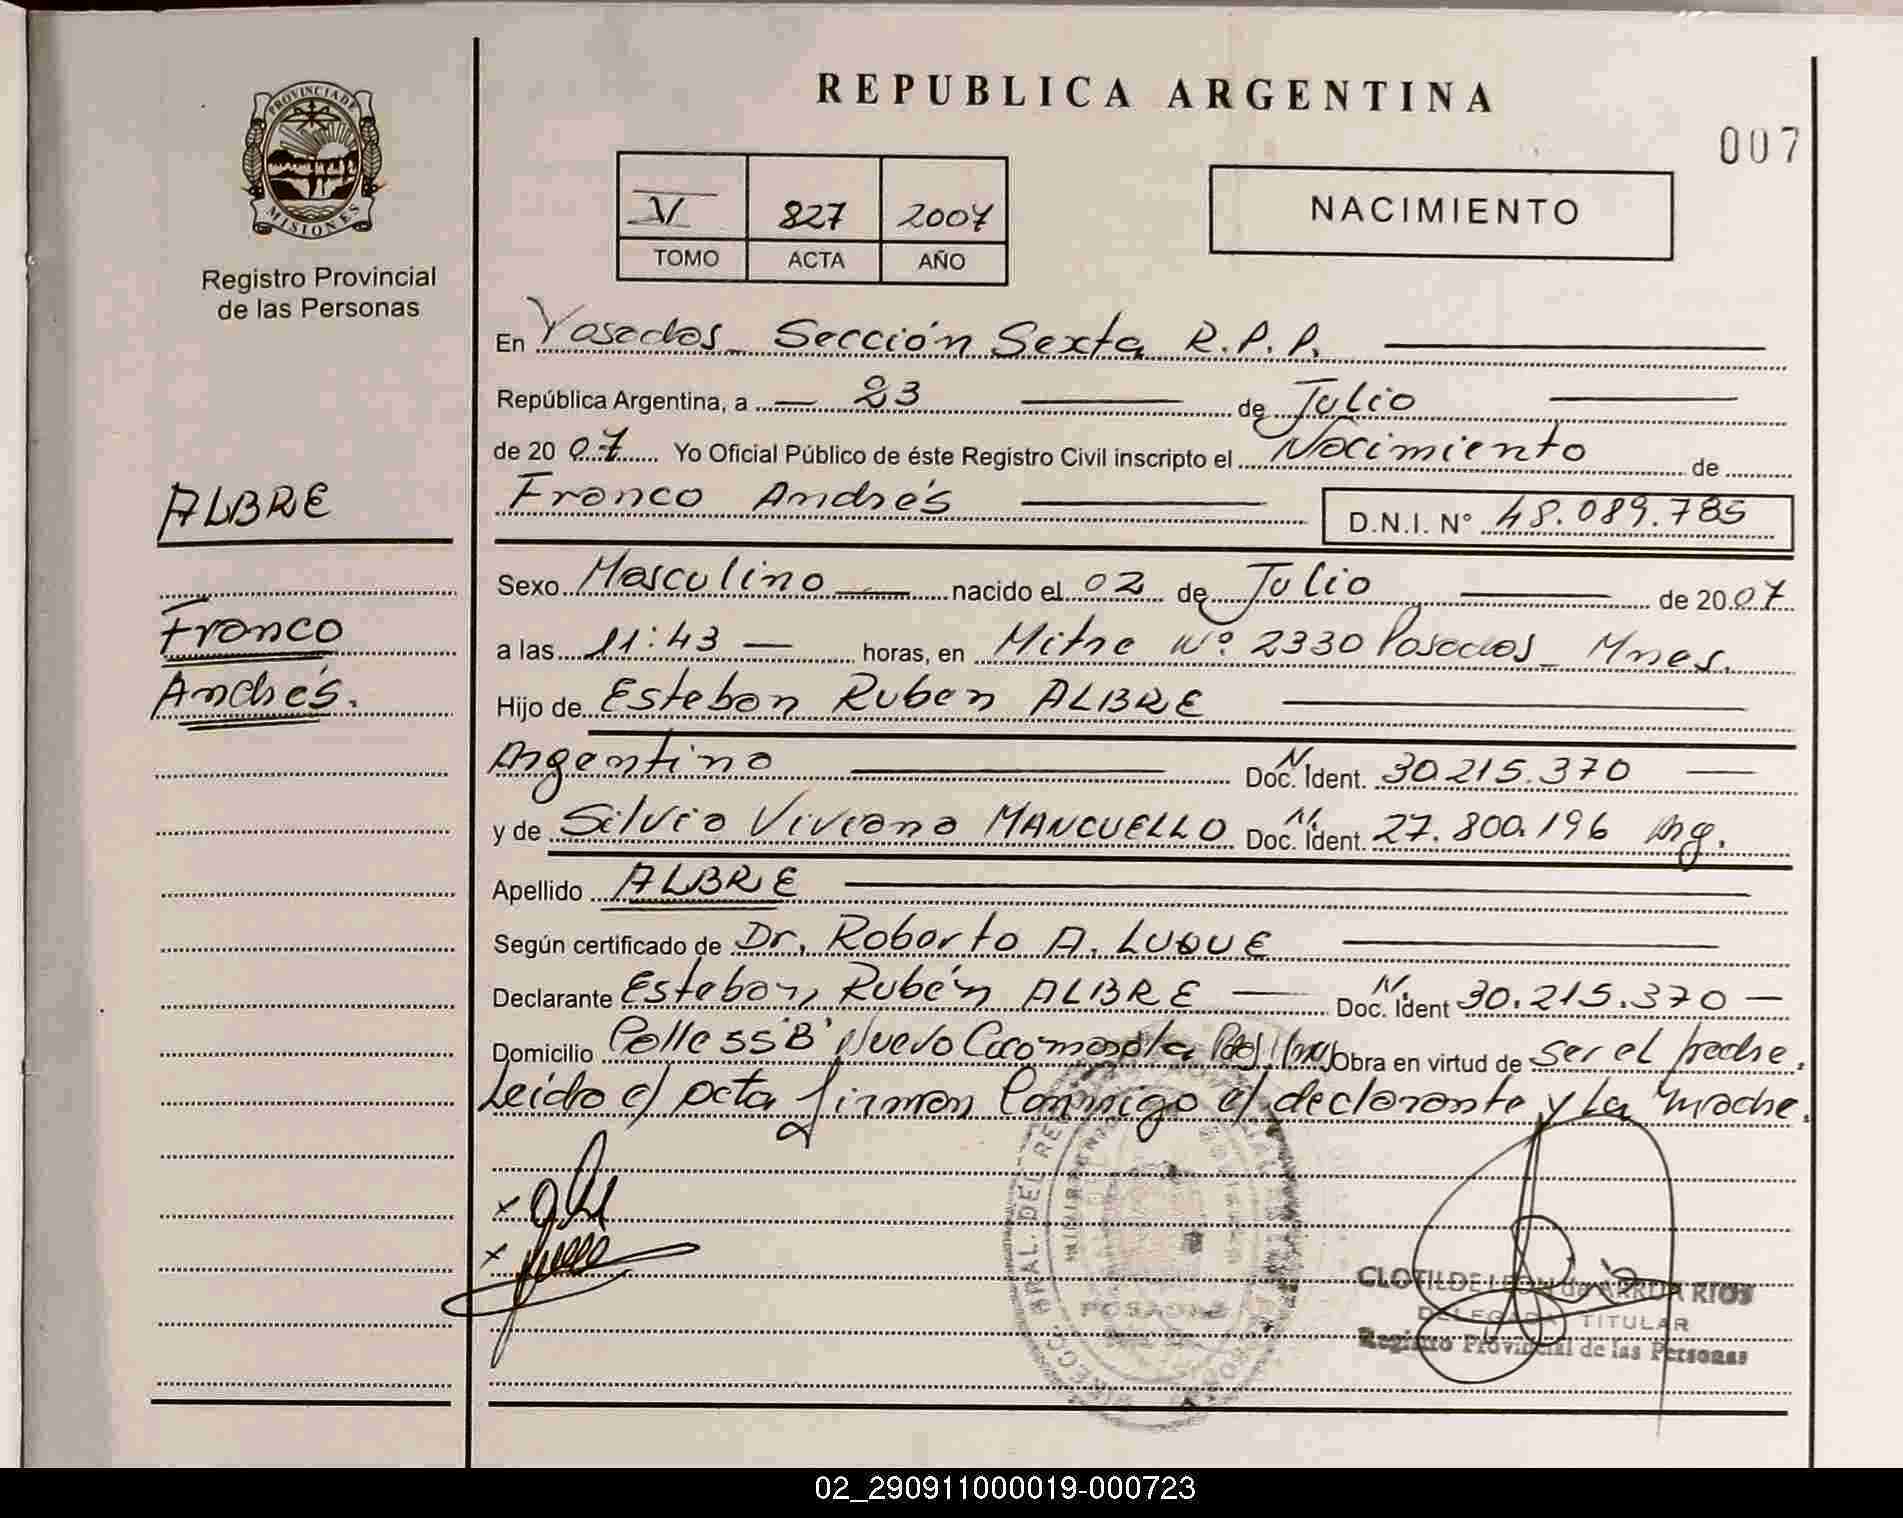 PROVINCIA DE
MISIONES
Registro Provincial
de las Personas
ALBRE
Franco
Andrés.
REPUBLICA ARGENTINA
007
V 827 2007
TOMO ACTA AÑO
NACIMIENTO
En Posadas_ Sección Sexta R.P.P.
República Argentina, a 23 de Julio
de 2007 Yo Oficial Público de éste Registro Civil inscripto el Nacimiento de
Franco Andrés D.N.I. N° 48.089.785
Sexo Masculino nacido el 02 de Julio de 2007
a las 11:43 horas, en Mitre Nº 2330 Posadas_ Mnes.
Hijo de Esteban Ruben ALBRE
Argentino Doc. N. Ident. 30.215.370
y de Silvia Viviana MANCUELLO Doc. N. Ident. 27.800.196 Arg.
Apellido ALBRE
Según certificado de Dr. Roberto A. LUQUE
Declarante Esteban Rubén ALBRE Doc. N. Ident 30.215.370
Domicilio Calle 55 "B" Nuevo Obra en virtud de ser el padre.
Leida el acta firman Conmigo el declarante y La madre.
POSADAS
CLOTILDE LEON de ARRUA RIOS
DELEGADA TITULAR
Registro Provincial de las Personas
02_290911000019-000723